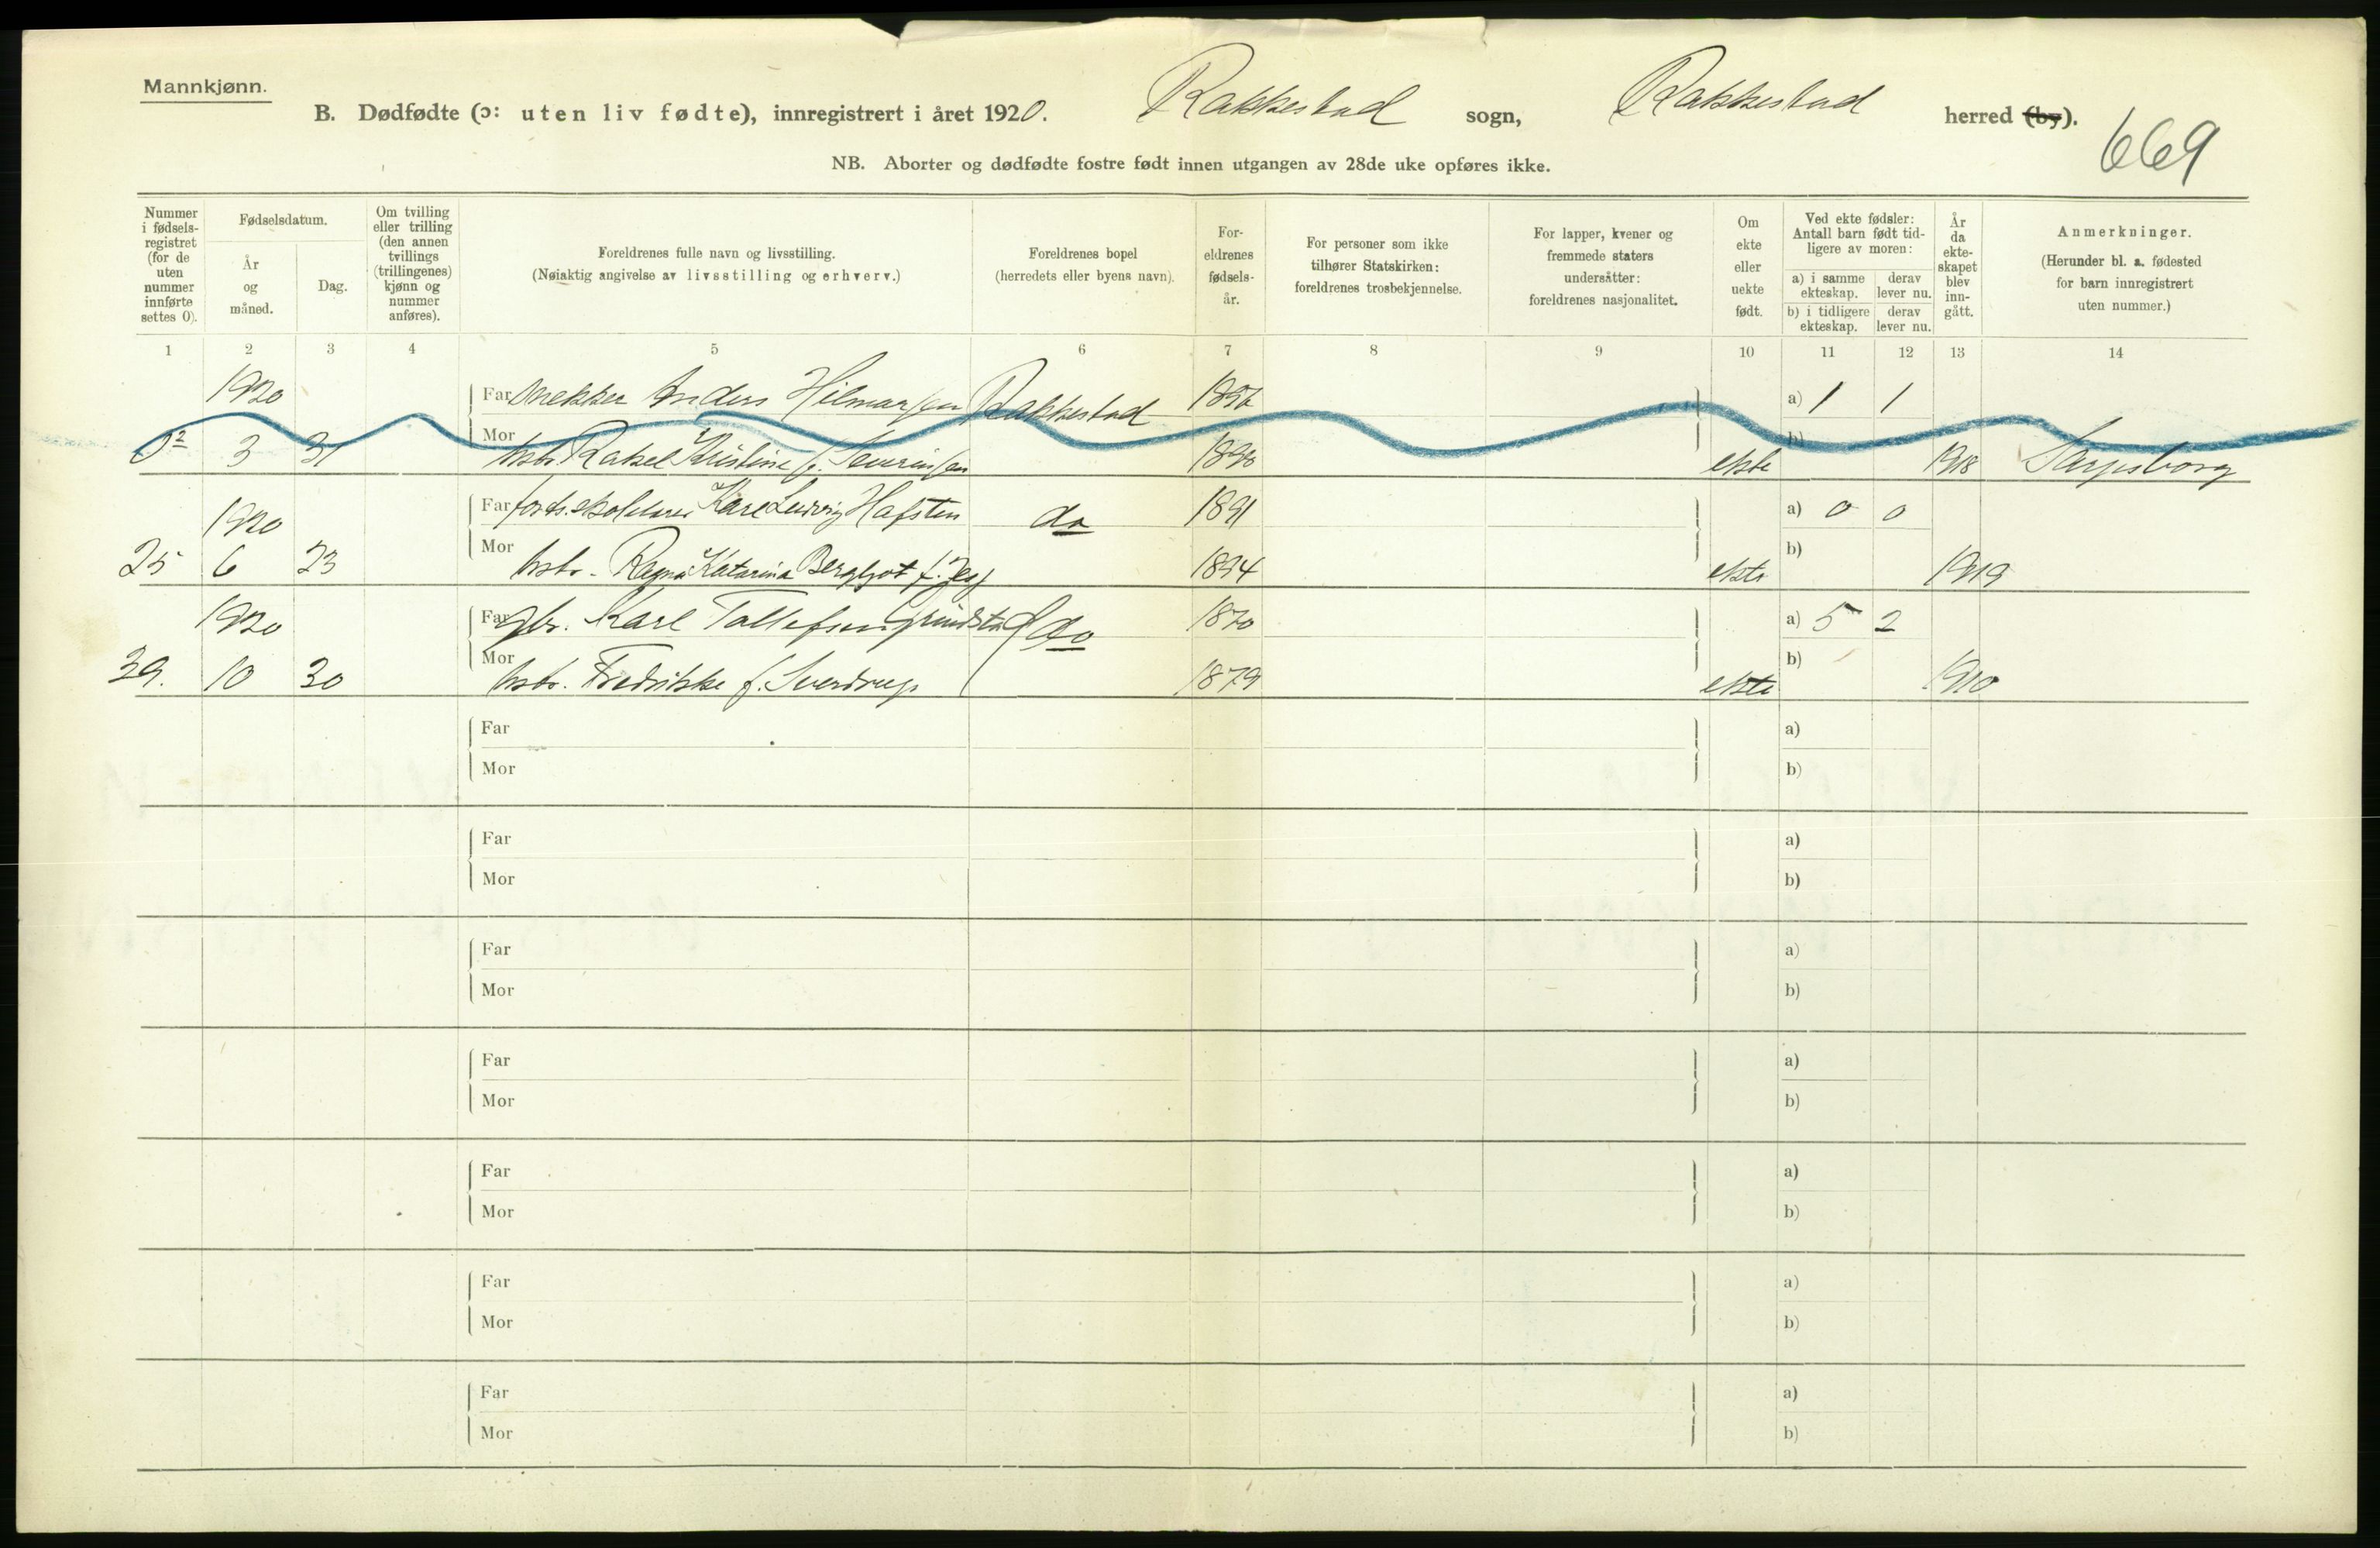 Mannkjønn.
B. Dødfødte (ɔ: uten liv fødte), innregistrert i året 1920. Rakkestad sogn, Rakkestad herred (by).
669
NB. Aborter og dødfødte fostre født innen utgangen av 28de uke opføres ikke.
Nummer i fødsels-registret (for de uten nummer innførte settes 0).
Fødselsdatum.
År og måned.
Dag.
Om tvilling eller trilling (den annen tvillings (trillingenes) kjønn og nummer anføres).
Foreldrenes fulle navn og livsstilling.
(Nøiaktig angivelse av livsstilling og erhverv.)
Foreldrenes bopel
(herredets eller byens navn).
For-eldrenes fødsels-år.
For personer som ikke tilhører Statskirken: foreldrenes trosbekjennelse.
For lapper, kvener og fremmede staters undersåtter: foreldrenes nasjonalitet.
Om ekte eller uekte født.
Ved ekte fødsler: Antall barn født tid-ligere av moren:
a) i samme ekteskap.
derav lever nu.
b) i tidligere ekteskap.
derav lever nu.
År da ekte-skapet blev inn-gått.
Anmerkninger.
(Herunder bl. a. fødested for barn innregistrert uten nummer.)
1 2 3 4 5 6 7 8 9 10 11 12 13 14
1920 Far Snekker Anders Hilmarsen Rakkestad a) 1 1
0² 3 31 Mor hstr. Rakel Kristine f. Severinsen ekte b) 1918 Sarpsborg
1920 Far Karl Ludvig Hafsten do 1891 a) 0 0
25 6 23 Mor hstr. Ragna Katarina Bergljot f. 1894 ekte b) 1919
1920 Far gbr. Karl Tollefsen Grindstad do 1870 a) 5 2
39. 10 30 Mor hstr. Fredrikke f. Sverdrup 1879 ekte b) 1910
Far a)
Mor b)
Far a)
Mor b)
Far a)
Mor b)
Far a)
Mor b)
Far a)
Mor b)
Far a)
Mor b)
Far a)
Mor b)